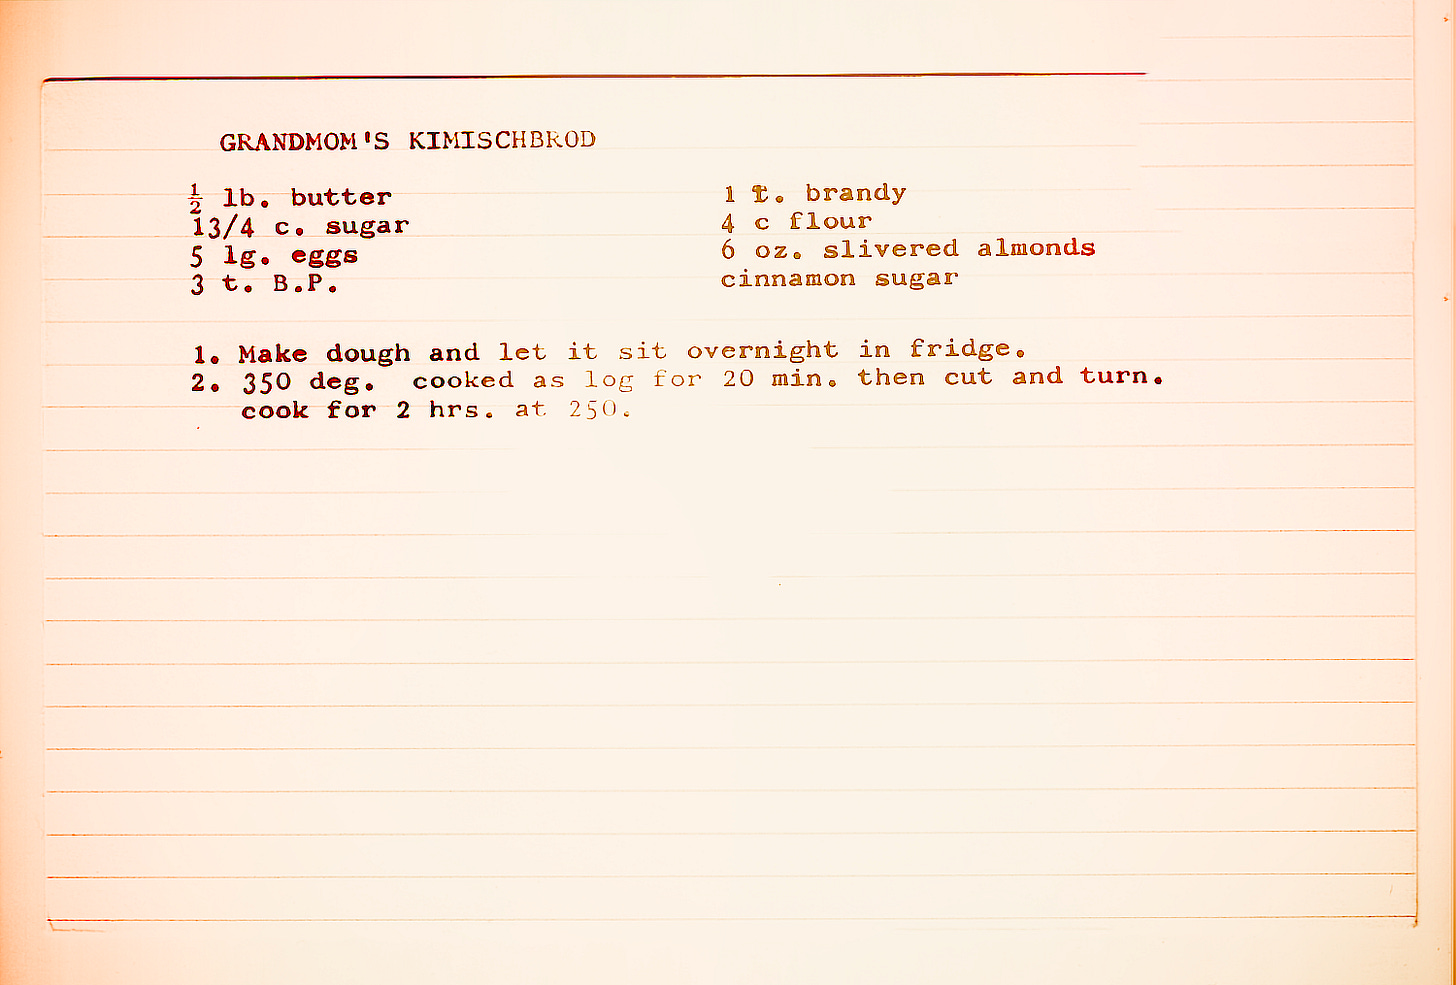 GRANDMOM'S KIMISCHBROD
½ lb. butter
13/4 c. sugar
5 lg. eggs
3 t. B.P.
1 t. brandy
4 c flour
6 oz. slivered almonds
cinnamon sugar
1. Make dough and let it sit overnight in fridge.
2. 350 deg. cooked as log for 20 min. then cut and turn.
cook for 2 hrs. at 250.